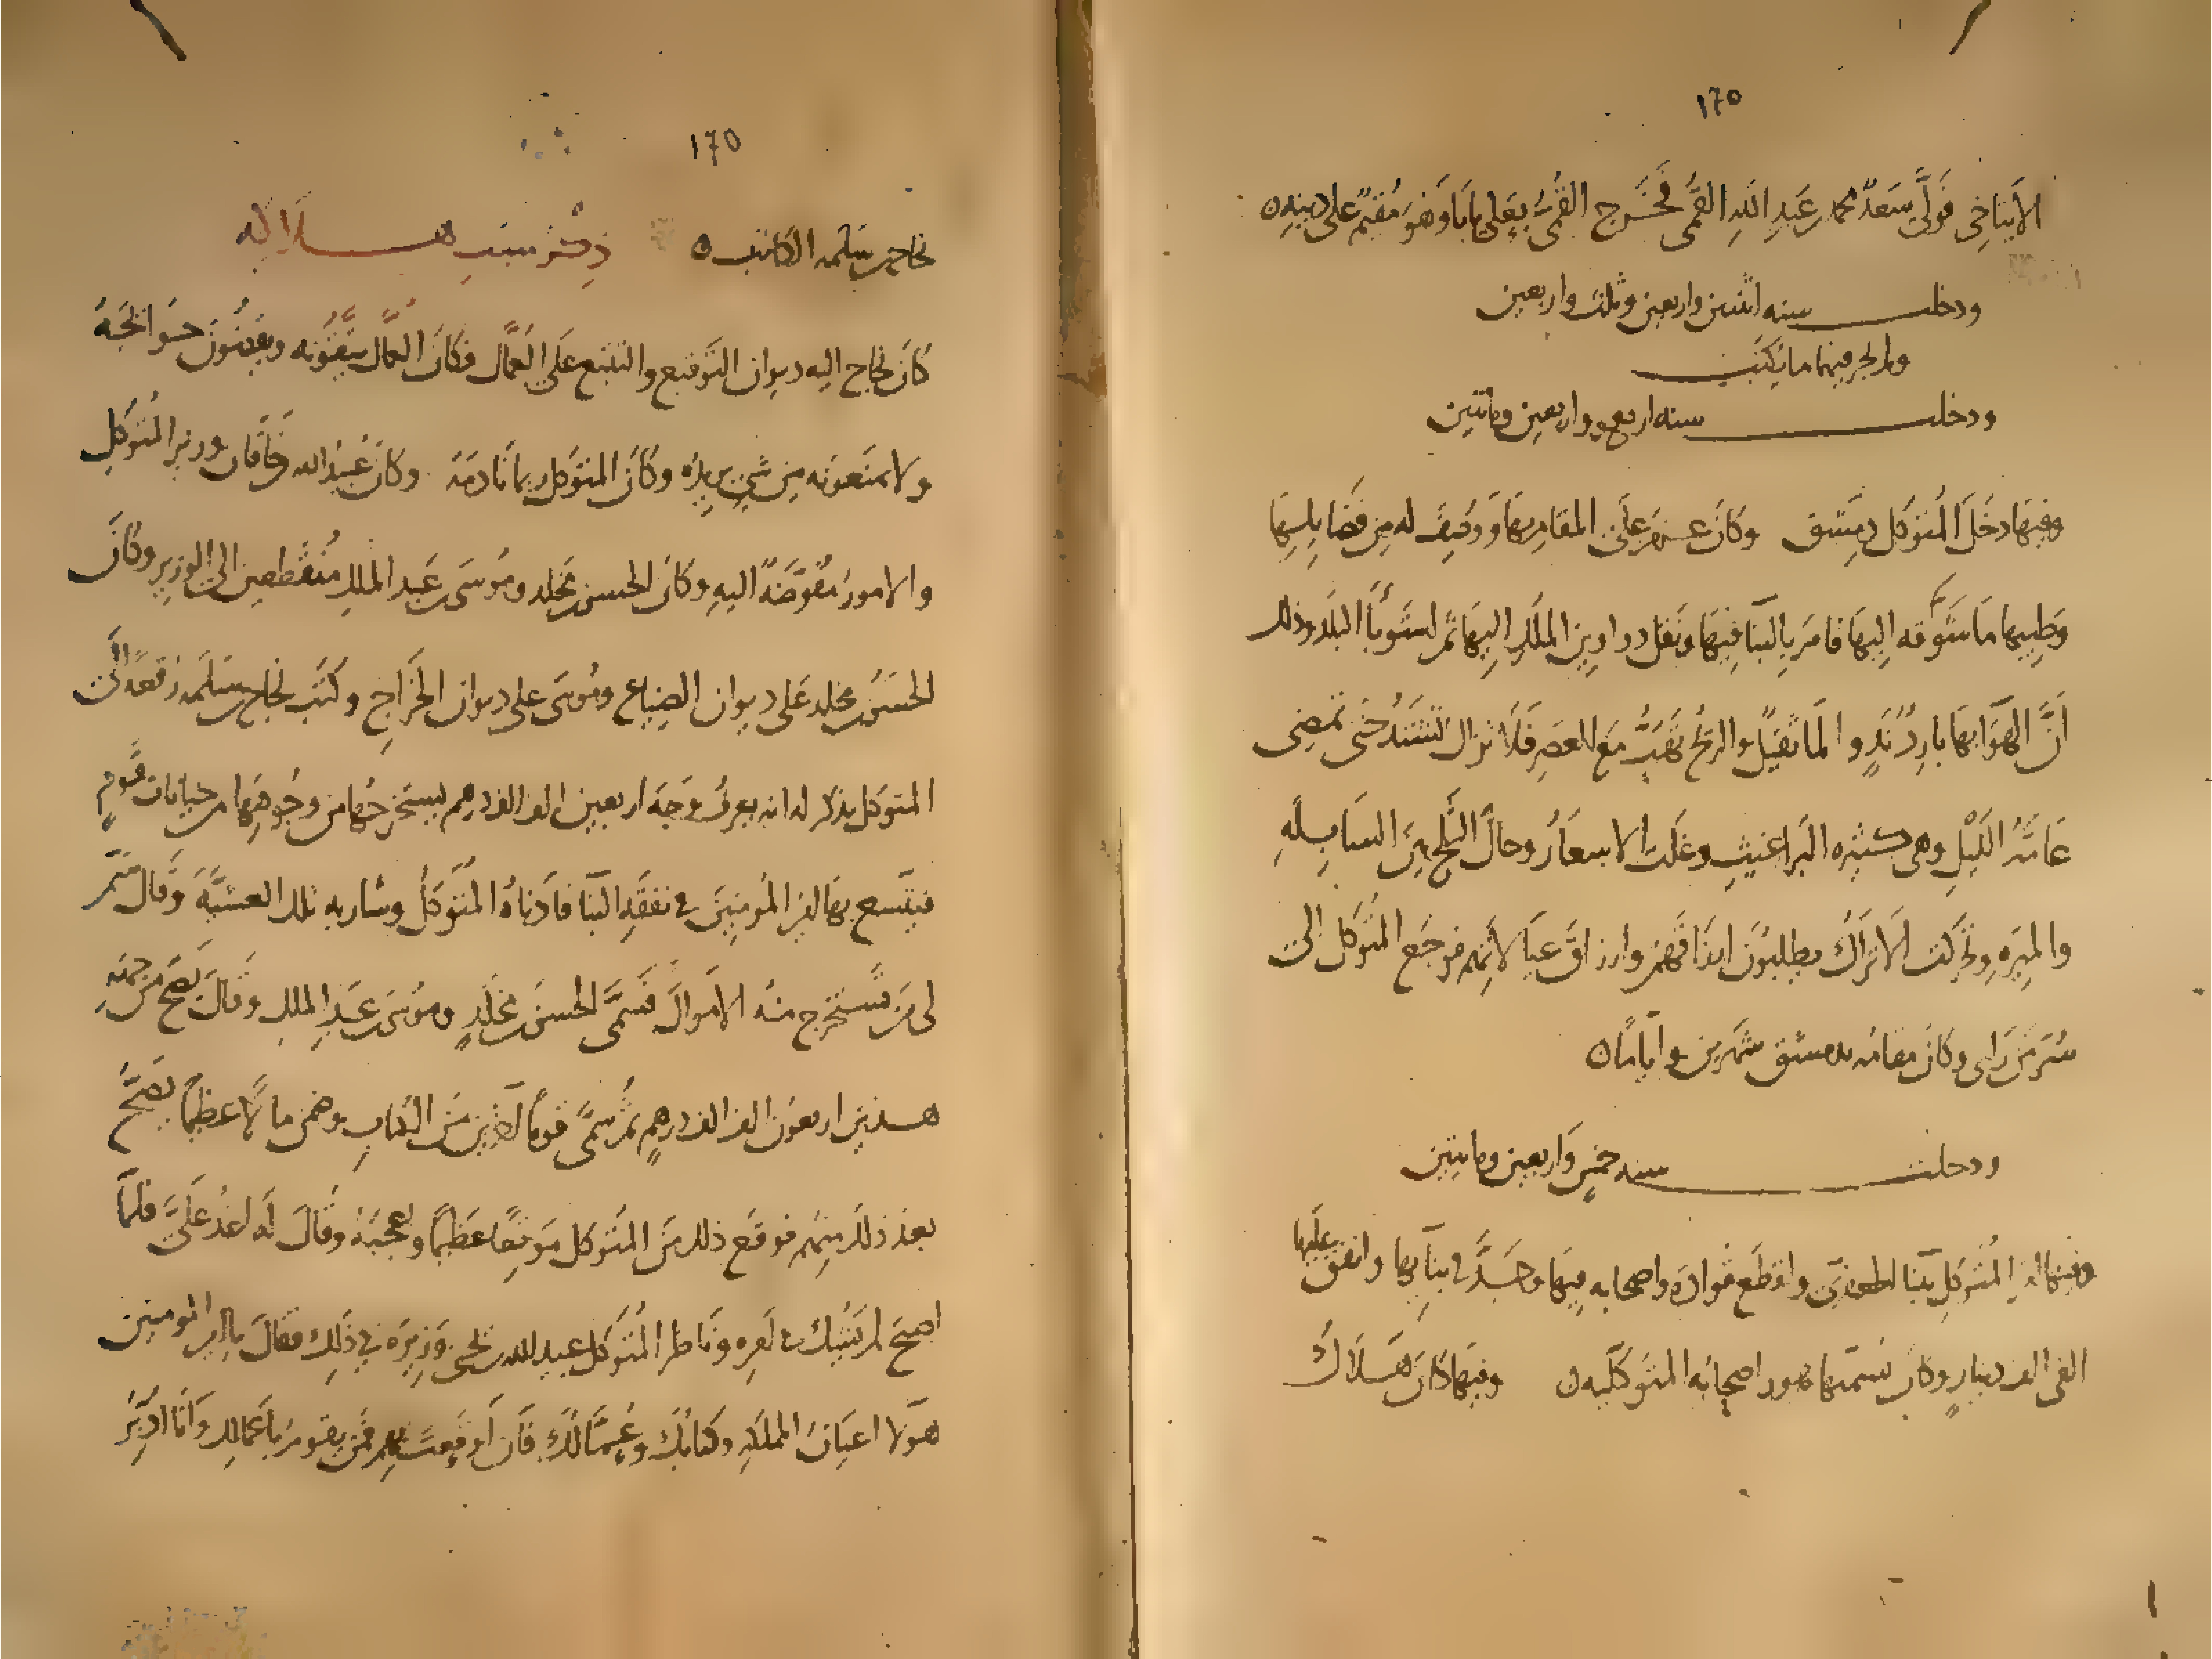 ١٦٥
الايتاخي فولّى سعدٌ محمد بن عبد الله القمي فخرج القمي بعلي بابا وهو مقيم على دينه ه
ودخلت سنه اثنتين واربعين وثلث واربعين
ولم يجر فيهما ما يكتب
ودخلت سنه اربع واربعين ومائتين
وفيها دخل المتوكل دمشق وكان عزم على المقام بها ووصف له من فضايلها
وطيبها ما شوّقه اليها فامر بالبنا فيها ونقل دواوين الملك اليها ثم استوبأ البلد وذلك
انّ الهوا بها باردٌ ندٍ والما ثقيل والريح تهبّ مع العصر فلا تزال تشتد حتى تمضى
عامّه الليل وهى كثيره البراغيث وغلت الاسعار وحال الثلج بين السابله
والميره وتحركت الاتراك يطلبون ارزاقهم وارزاق عيالاتهم فرجع المتوكل الى
سرّ من راى وكان مقامه بدمشق شهرين واياما ه
ودخلت سنه خمس واربعين ومايتين
وفيها امر المتوكل ببنا الجعفرى واقطع قواده واصحابه فيها وجدّ فى بنايها وانفق عليها
الفى الف دينار وكان يسميها هو واصحابه المتوكليه ه وفيها كان هلاك
١٦٥
نجاح بن سلمه الكاتب ه ذكر سبب هلاكه
كان نجاح اليه ديوان التوقيع والتتبع على العمال فكان العمال يتقونه ويقضون حوايجه
ولا يمنعونه من شى يريده وكان المتوكل ربما نادمه وكان عبيد الله بن خاقان وزير المتوكل
والامور مفوضةً اليه وكان الحسن بن مخلد وموسى بن عبد الملك منقطعين الى الوزير وكان
الحسن بن مخلد على ديوان الضياع وموسى على ديوان الخراج وكتب نجاح بن سلمه رقعه الى
المتوكل يذكر له انه يعرف وجه اربعين الف الف درهم يستخرجها من وجوهها من خيانات قوم
فيتسع بها امير المومنين فى نفقه البنا فادناه المتوكل وشاربه تلك العشيّه وقال سمّ
لى من تستخرج منه الاموال فسمّى الحسن بن مخلد وموسى بن عبد الملك وقال يصح من جهه
هذين اربعون الف الف درهم ثم سمّى قوما اخرين من الكتاب وضمن مالا عظيما يصح
بعد ذلك منهم فوقع ذلك من المتوكل موقعا عظيما واعجبه وقال له اغد علىّ فلما
اصبح لم يشك فى امره وناظر المتوكل عبيد الله بن يحيى وزيره فى ذلك فقال يا امير المومنين
هولا اعيان المملكه وكتابك وعمالك فان اوقعت بهم فمن يقوم باعمالك وانا ادبّر